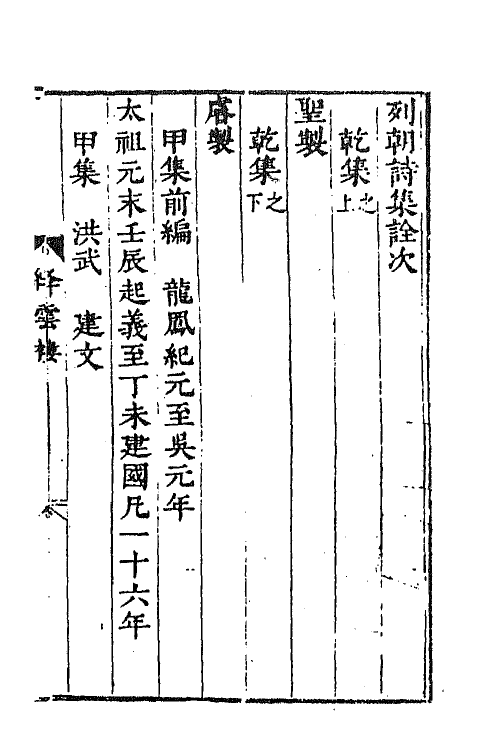 列朝詩集詮次
乾集之上
聖製
乾集之下
睿製
甲集前編 龍鳳紀元至吳元年
太祖元末壬辰起義至丁未建國凡一十六年
甲集 洪武 建文
絳雲樓